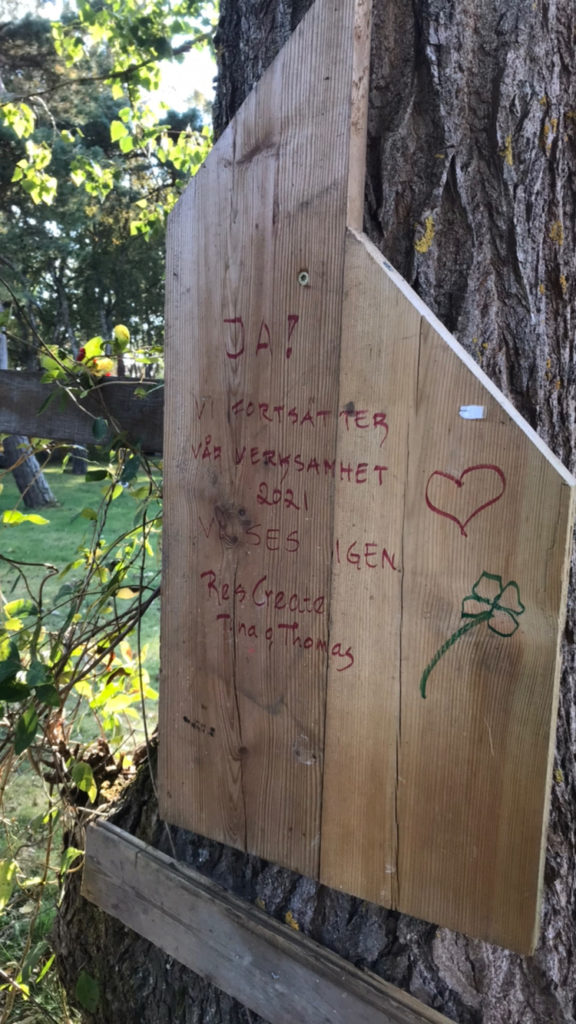 JA!
VI FORTSÄTTER
VÅR VERKSAMHET
2021
VI SES IGEN
ResCreate
Tina o Thomas